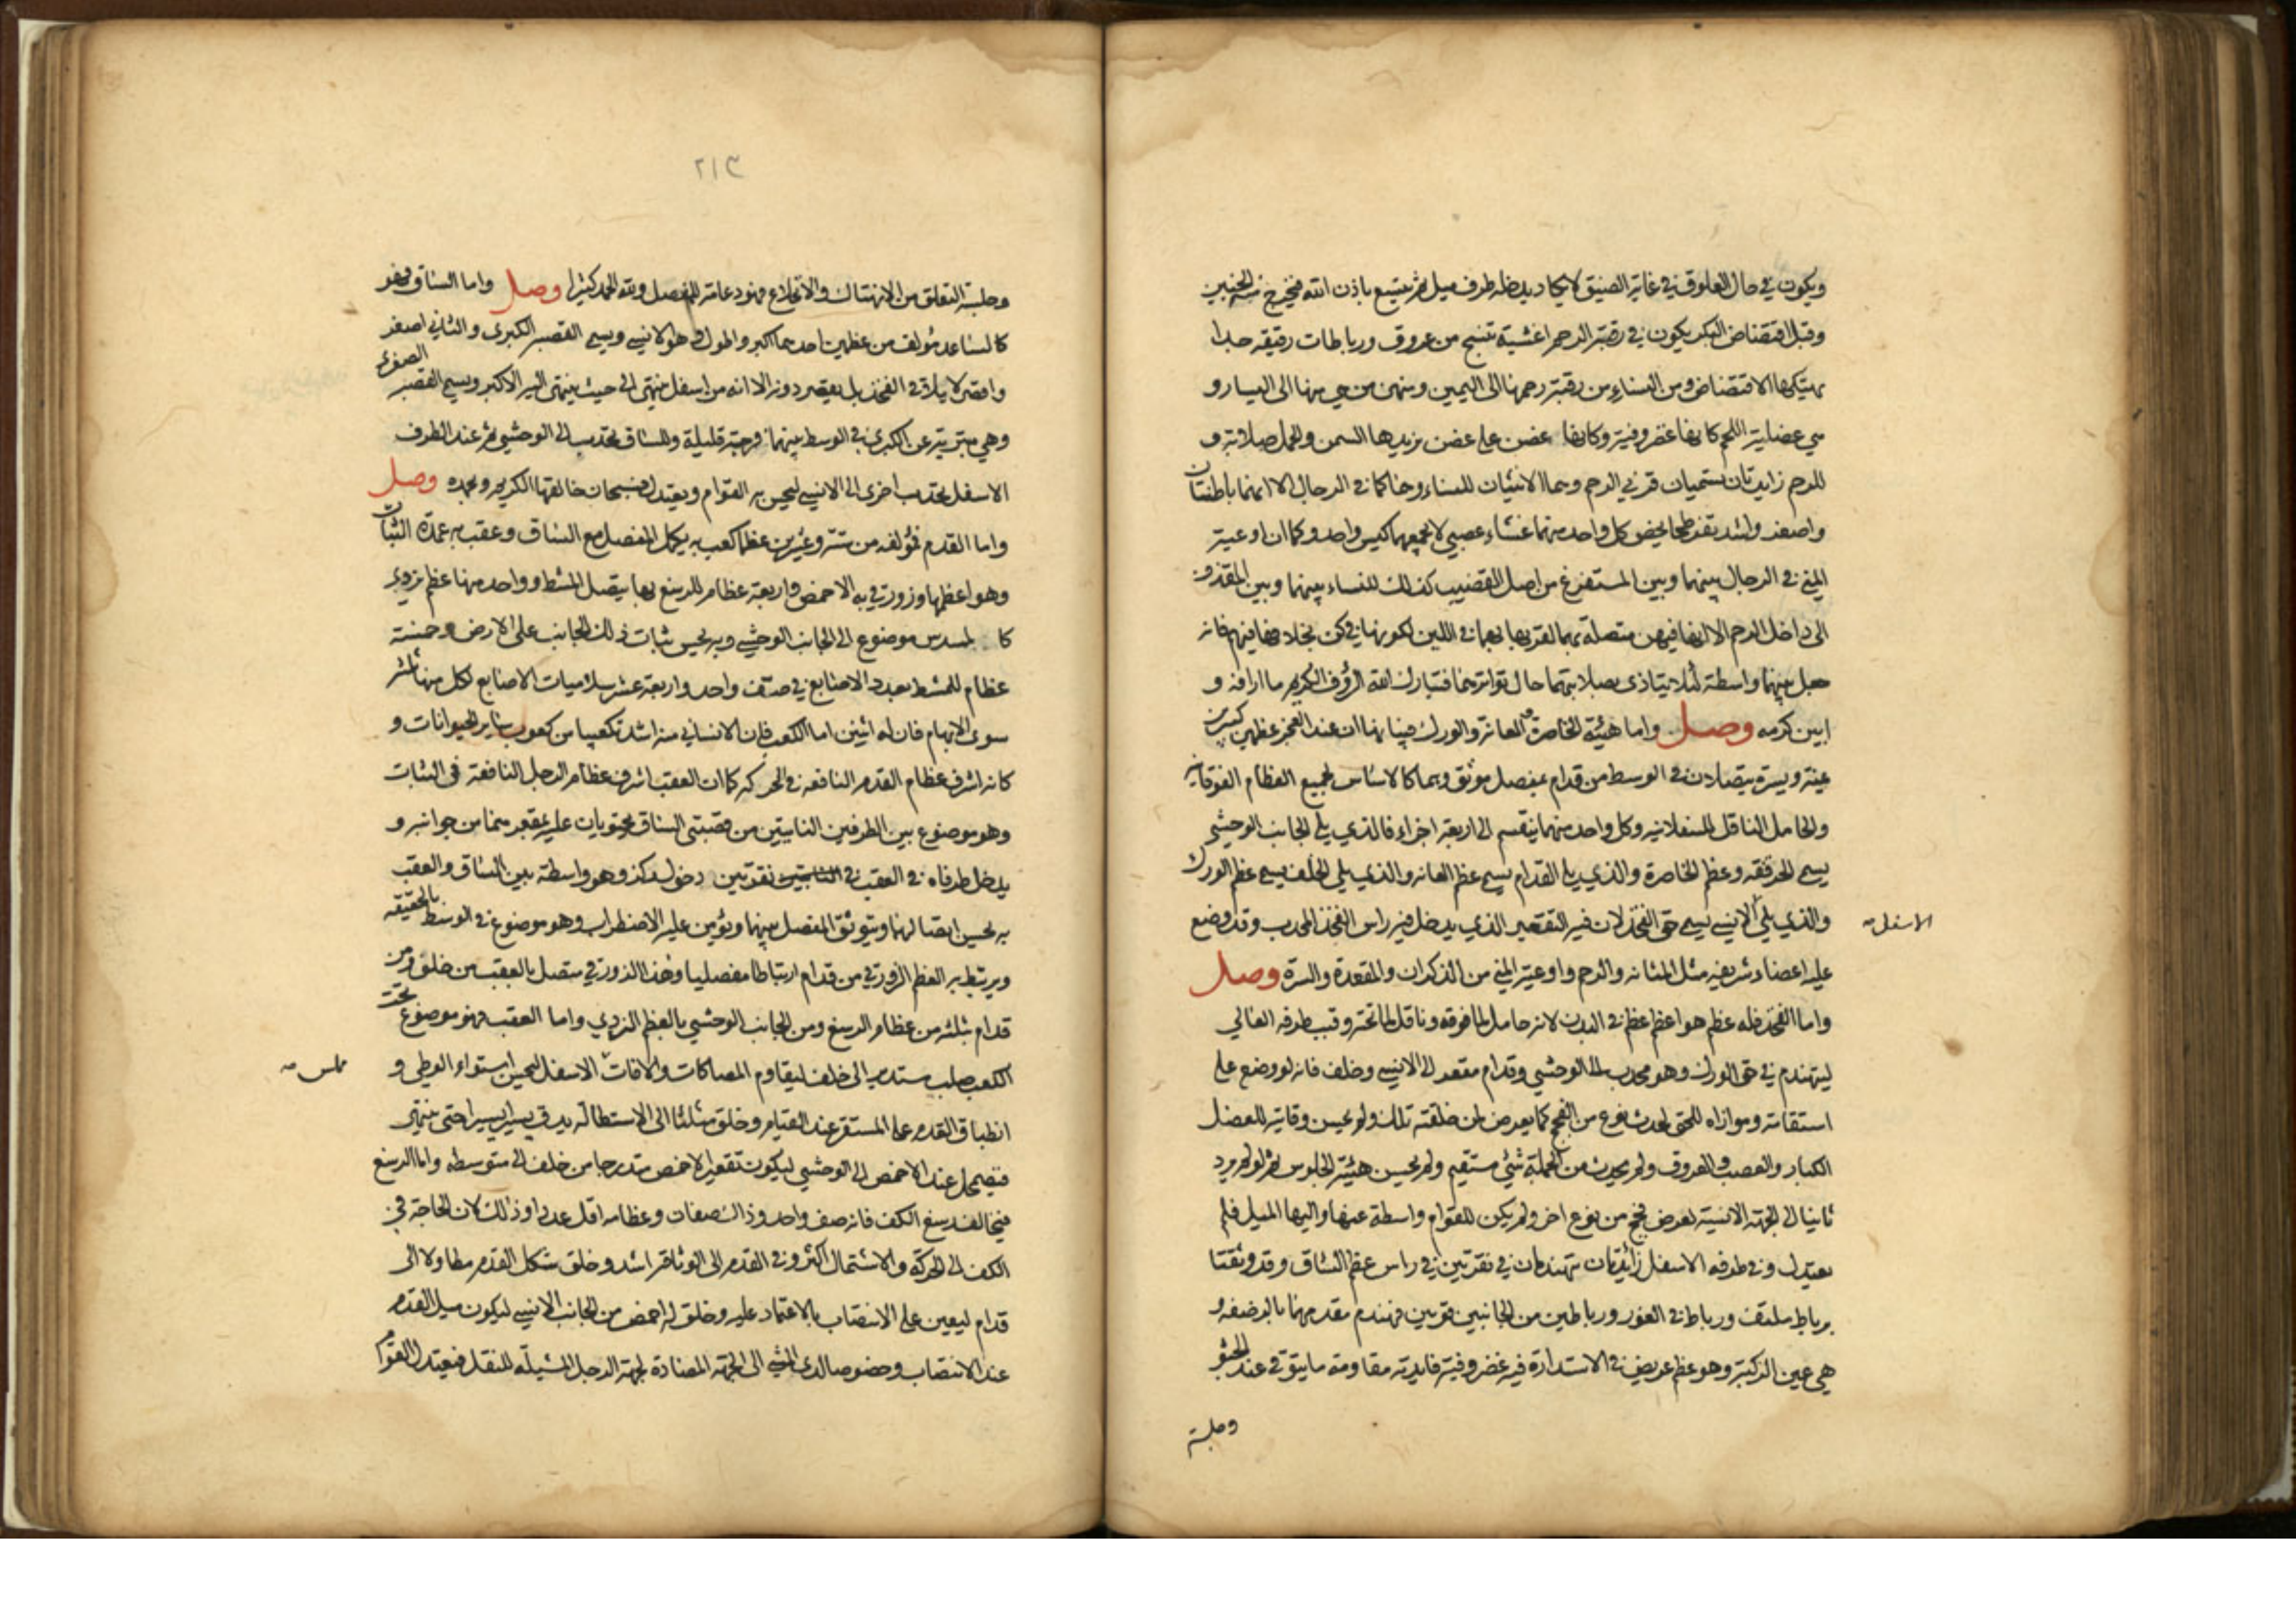 ويكون في حال العلوق في غاية الضيق لا يكاد يدخله طرف ميل ثم يتسع باذن الله فيخرج منه الجنين
وقبل افتضاض البكر يكون في رقبة الرحم اغشية تنتسج من عروق ورباطات رقيقة جدا
يهتكها الافتضاض ومن النساء من رقبة رحمها الى اليمين ومنهن من هي منها الى اليسار و
هي عضلية اللحم كانها غضروفية وكانها غضن على غضن يزيدها السمن والحمل صلابة و
للرحم زايدتان تسميان قرني الرحم وهما الانثيان للنساء وهنا كما في الرجال الا انهما باطنتان
واصغر واشد تفرطحا يخص كل واحد منهما غشاء عصبي لا يجمعهما كيس واحد وكما ان اوعية
المني في الرجال بينهما وبين المستفرغ من اصل القضيب كذلك للنساء بينهما وبين المقذف
الى داخل الرحم الا انها فيهن متصلة بهما لقربها بهما في اللين لكونها في كن بخلافها فيهم فانه
جعل بينهما واسطة لئلا يتاذى بصلابتهما حال تواترهما فتبارك الله الرؤف الكريم ما ارافه و
ابين كرمه وصل واما هيئة الخاصرة والعانة والورك فبيانها ان عند العجز عظمين كبيرين
يمنة ويسرة يتصلان في الوسط من قدام بمفصل موثق وهما كالاساس لجميع العظام الفوقانية
والحامل الناقل للسفلانية وكل واحد منهما ينقسم الى اربعة اجزاء فالذي يلي الجانب الوحشي
يسمى الحرقفة وعظم الخاصرة والذي يلي القدام يسمى عظم العانة والذي يلي الخلف يسمى عظم الورك
والذي يلي الانسي يسمى حق الفخذ لان فيه التقعير الذي يدخل فيه راس الفخذ المحدب وقد وضع
الاسفل صه
عليه اعضاء شريفة مثل المثانة والرحم واوعية المني من الذكران والمقعدة والسرة وصل
واما الفخذ فله عظم هو اعظم عظم في البدن لانه حامل لما فوقه وناقل لما تحته وقبب طرفه العالي
ليتهندم في حق الورك وهو محدب الى الوحشي وقدام مقعر الى الانسي وخلف فانه لو وضع على
استقامة وموازاة للحق لحدث نوع من الفحج كما يعرض لمن خلقته تلك ولم يحسن وقايته للعضل
الكبار والعصب والعروق ولم يحدث من الجملة شئ مستقيم ولم يحسن هيئة الجلوس ثم لو لم يرد
ثانيا الى الجهة الانسية لعرض فحج من نوع اخر ولم يكن للقوام واسطة عنها واليها الميل فلم
يعتدل وفي طرفه الاسفل زائدتان تتهندمان في نقرتين في راس عظم الساق وقد وثقتا
برباط ملتف ورباط في الغور ورباطين من الجانبين قويين فهندم مقدمهما بالرضفة و
هي عين الركبة وهو عظم عريض في الاستدارة فيه غضروفية فايدته مقاومة ما يتوقى عند الجثو
وجلسة
٢١٣
وجلسة التعلق من الانهتاك والانخلاع فهو دعامة للمفصل ولله الحمد كثيرا وصل واما الساق فهو
كالساعد مؤلف من عظمين احدهما اكبر واطول وهو الانسي ويسمى القصبة الكبرى والثاني اصغر
واقصر لا يلاقي الفخذ بل يقصر دونه الا انه من اسفل ينتهي الى حيث ينتهي اليه الاكبر ويسمى القصبة الصغرى
وهي متبرية عن الكبرى في الوسط بينهما فرجة قليلة وللساق تحدب الى الوحشي ثم عند الطرف
الاسفل تحدب اخرى الى الانسي ليحسن به القوام ويعتدل فسبحان خالقها الكريم وبحمده وصل
واما القدم فمؤلفة من ستة وعشرين عظما كعب به يكمل المفصل مع الساق وعقب به عمدة الثبات
وهو اعظمها وزورقي به الاخمص واربعة عظام للرسغ بها يتصل المشط وواحد منها عظم نردي
كالمسدس موضوع الى الجانب الوحشي وبه يحسن ثبات ذلك الجانب على الارض وخمسة
عظام للمشط بعدد الاصابع في صف واحد واربعة عشر سلاميات الاصابع لكل منها ثلثة
سوى الابهام فان له اثنين اما الكعب فان الانساني منه اشد تكعيبا من كعوب ساير الحيوانات و
كانه اشرف عظام القدم النافعة في الحركة كما ان العقب اشرف عظام الرجل النافعة في الثبات
وهو موضوع بين الطرفين الناتيين من قصبتي الساق يحتويان عليه بمقعرهما من جوانبه و
يدخل طرفاه في العقب في نقرتين دخول ركز وهو واسطة بين الساق والعقب
به يحسن اتصالهما ويتوثق المفصل بينهما ويؤمن عليه الاضطراب وهو موضوع في الوسط بالحقيقة
ويرتبط به العظم الزورقي من قدام ارتباطا مفصليا وهذا الزورقي متصل بالعقب من خلف ومن
قدام بثلثة من عظام الرسغ ومن الجانب الوحشي بالعظم النردي واما العقب فهو موضوع تحت
الكعب صلب مستدير الى خلف ليقاوم المصاكات والافات الاسفل ليحسن استواء الوطي و
مملس صه
انطباق القدم على المستقر عند القيام وخلق مثلثا الى الاستطالة يدق يسيرا يسيرا حتى ينتهي
فيضمحل عند الاخمص الى الوحشي ليكون تقعير الاخمص متدرجا من خلف الى متوسطه واما الرسغ
فيخالف رسغ الكف فانه صف واحد وذاك صفان وعظامه اقل عددا وذلك لان الحاجة في
الكف الى الحركة والاشتمال اكثر وفي القدم الى الوثاقة اشد وخلق شكل القدم مطاولا الى
قدام ليعين على الانتصاب بالاعتماد عليه وخلق له اخمص من الجانب الانسي ليكون ميل القدم
عند الانتصاب وخصوصا لدى المشي الى الجهة المضادة لجهة الرجل المشيلة للنقل فيعتدل القوام